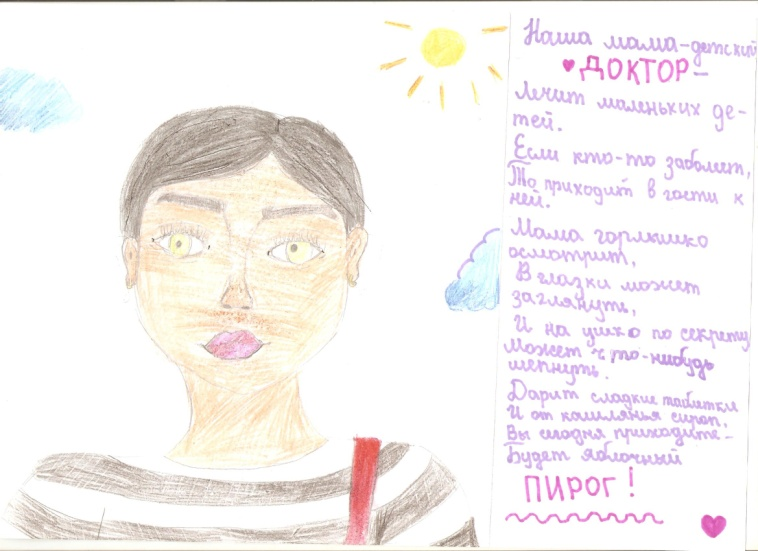 Наша мама-детский
ДОКТОР-
Лечит маленьких де-
тей.
Если кто-то заболеет,
То приходит в гости к
ней.
Мама горлышко
осмотрит,
В глазки может
заглянуть,
И на ушко по секрету
Может что-нибудь
шепнуть.
Дарит сладкие таблетки
И от кашлянья сироп,
Вы сегодня приходите-
Будет яблочный
ПИРОГ!